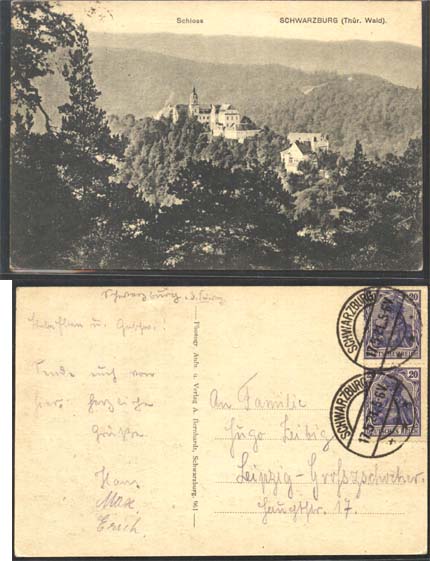 Schloss SCHWARZBURG (Thür. Wald).
Schwarzburg
20
SCHWARZBURG
20
SCHWARZBURG
Sende euch von
hier herzliche
Grüße
Hans
Max
Erich
Photogr. Aufn. u. Verlag A. Bernhardt, Schwarzburg. 961
An Familie
Hugo Leibig
Leipzig-Großzschocher
Hauptstr. 17.